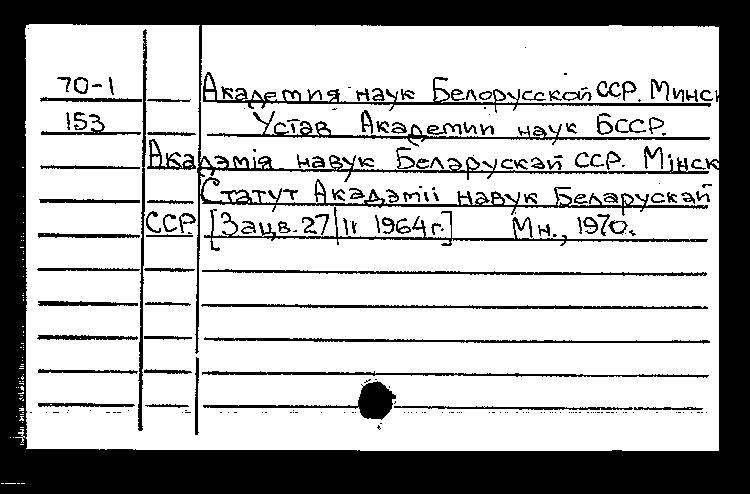 70-1 Академия наук Белорусской ССР. Минск
153 Устав Академии наук БССР.
Акадэмія навук Беларускай ССР. Мінск
Статут Акадэміі навук Беларускай
ССР [Зацв. 27/II 1964г.] Мн., 1970.